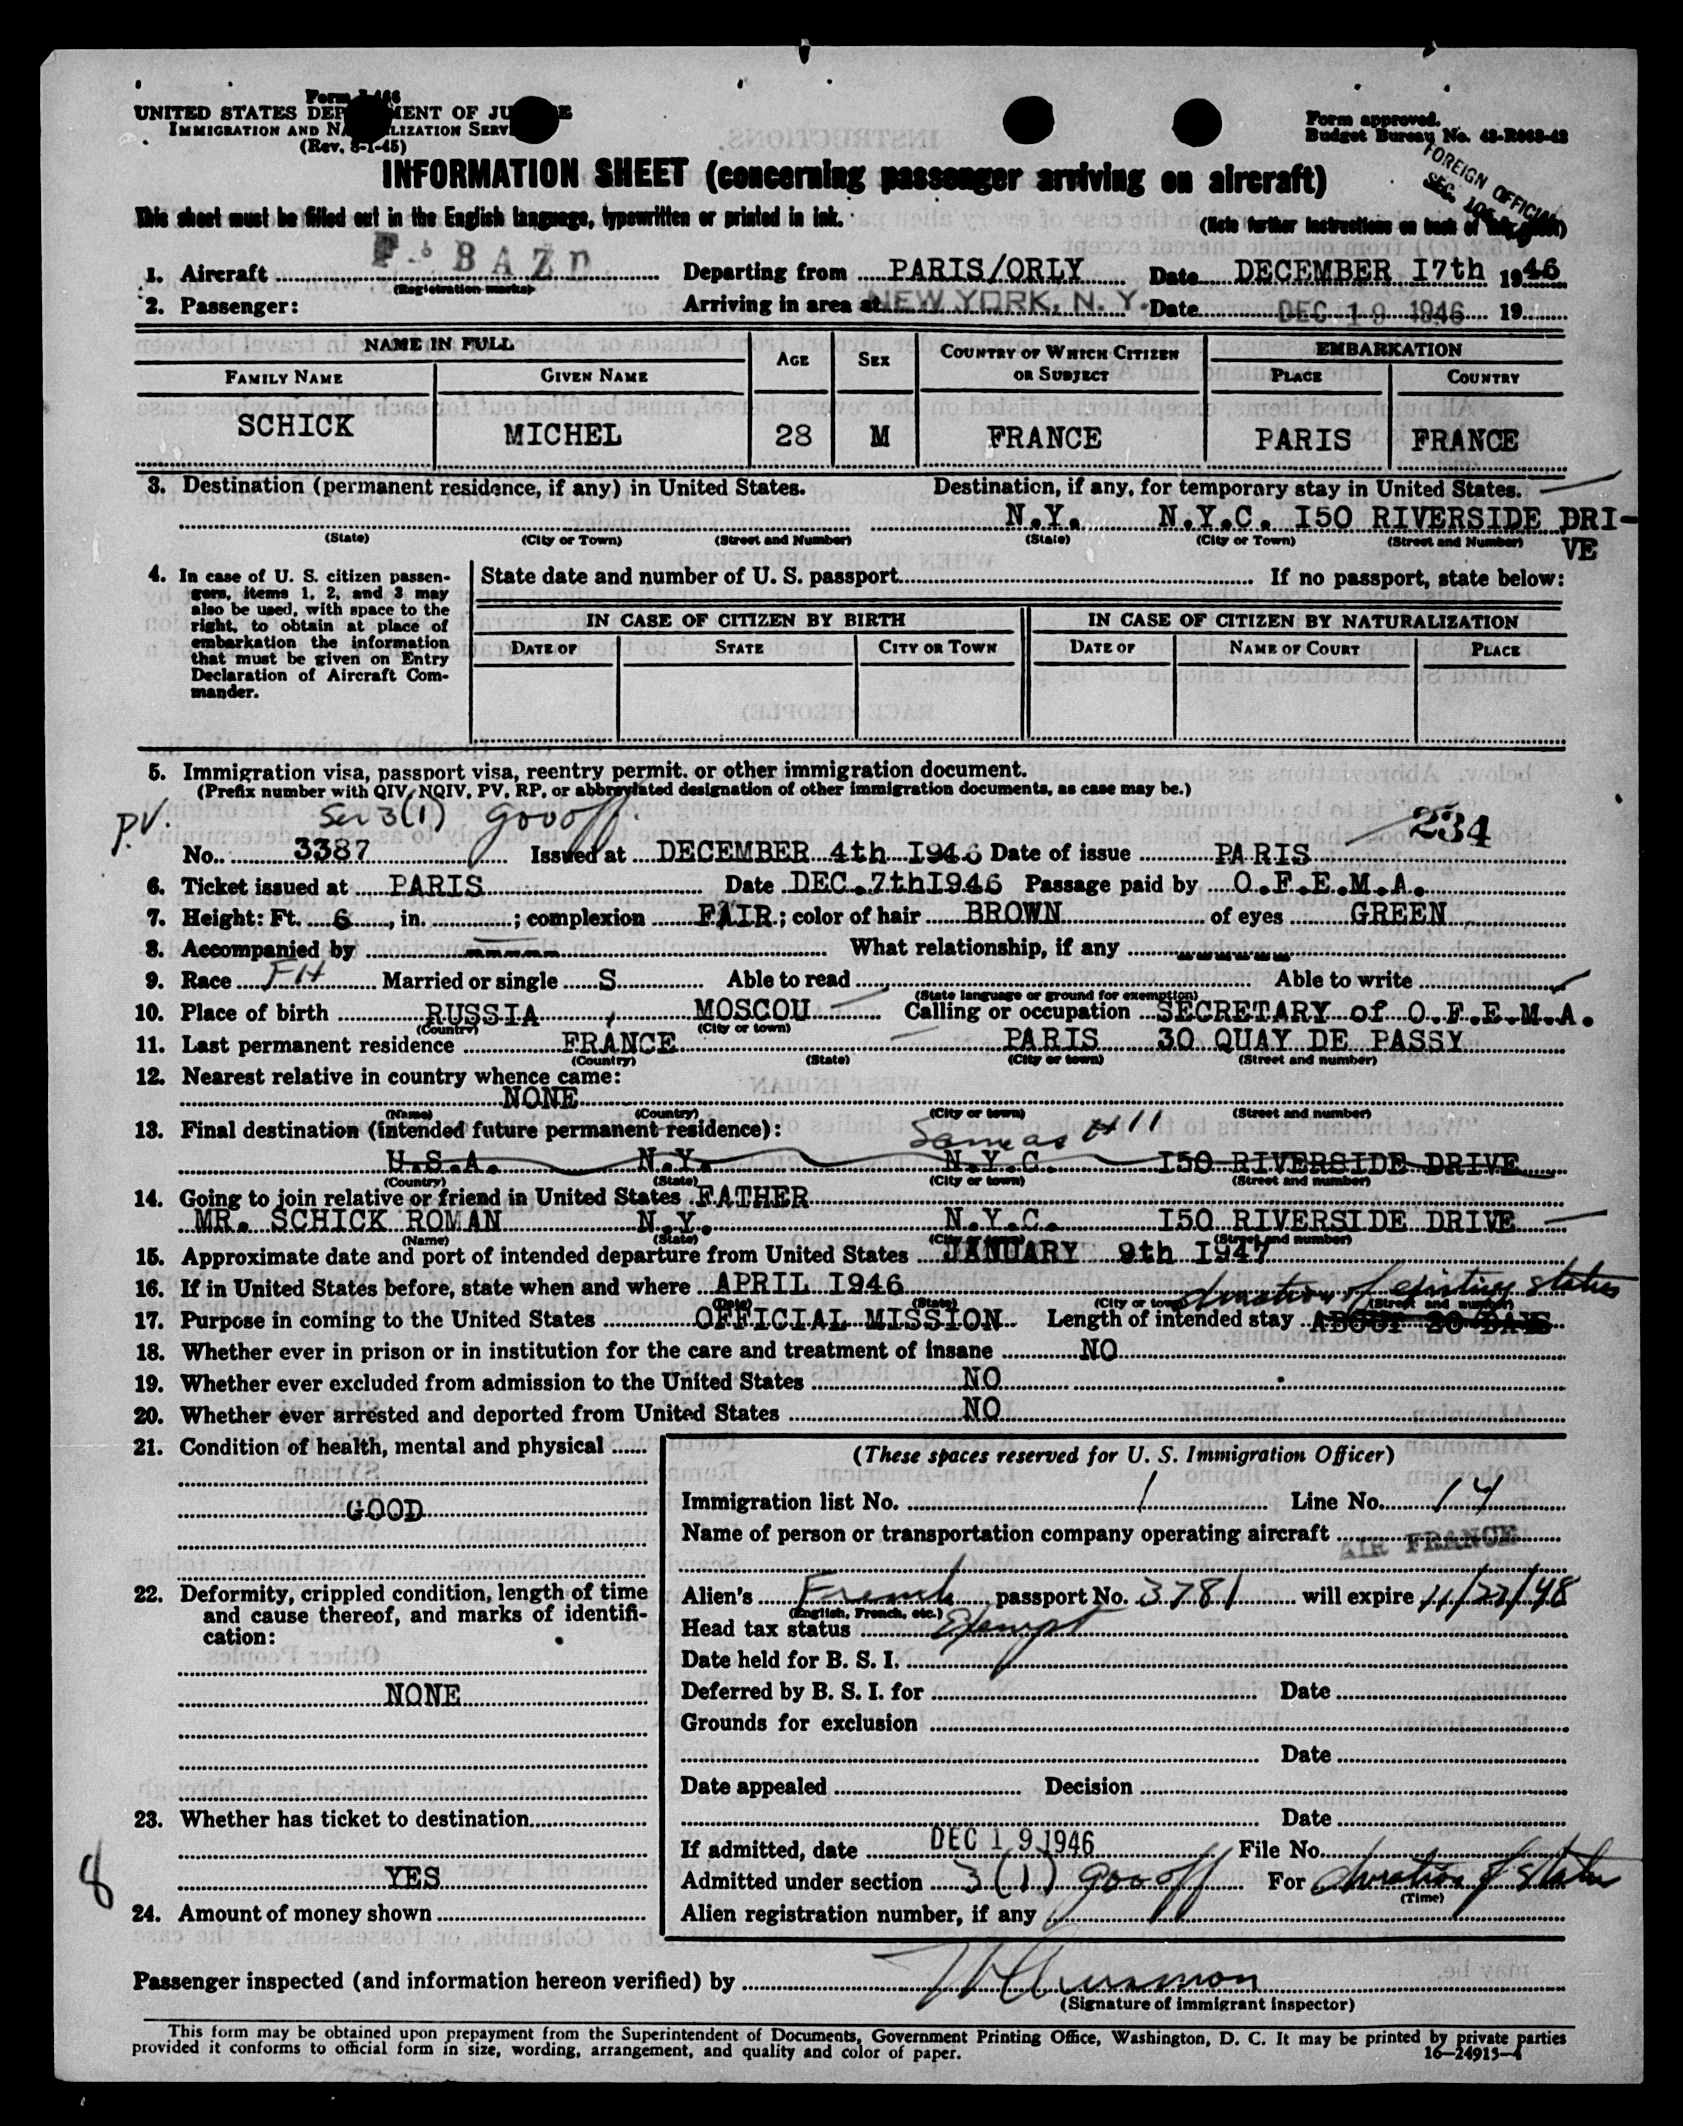 Form I-466
UNITED STATES DEPARTMENT OF JUSTICE
IMMIGRATION AND NATURALIZATION SERVICE
(Rev. 8-1-45)
Form approved.
Budget Bureau No. 43-R063-42
FOREIGN OFFICIAL
SEC.
INFORMATION SHEET (concerning passenger arriving on aircraft)
This sheet must be filled out in the English language, typewritten or printed in ink.
(Note further instructions on back of this sheet)
1. Aircraft F- BAZD Departing from PARIS/ORLY Date DECEMBER I7th 1946
(Registration marks)
2. Passenger: Arriving in area at NEW YORK, N. Y. Date DEC 19 1946 19
NAME IN FULL AGE SEX COUNTRY OF WHICH CITIZEN OR SUBJECT EMBARKATION
FAMILY NAME GIVEN NAME PLACE COUNTRY
SCHICK MICHEL 28 M FRANCE PARIS FRANCE
3. Destination (permanent residence, if any) in United States. Destination, if any, for temporary stay in United States.
N.Y. N.Y.C. I50 RIVERSIDE DRI-
VE
(State) (City or Town) (Street and Number) (State) (City or Town) (Street and Number)
4. In case of U. S. citizen passen-
gers, items 1, 2, and 3 may
also be used, with space to the
right, to obtain at place of
embarkation the information
that must be given on Entry
Declaration of Aircraft Com-
mander.
State date and number of U. S. passport If no passport, state below:
IN CASE OF CITIZEN BY BIRTH IN CASE OF CITIZEN BY NATURALIZATION
DATE OF STATE CITY OR TOWN DATE OF NAME OF COURT PLACE
5. Immigration visa, passport visa, reentry permit, or other immigration document.
(Prefix number with QIV, NQIV, PV, RP, or abbreviated designation of other immigration documents, as case may be.)
P.V. Sec 3(1) gov off. 234
No. 3387 Issued at DECEMBER 4th I946 Date of issue PARIS
6. Ticket issued at PARIS Date DEC.7thI946 Passage paid by O.F.E.M.A.
7. Height: Ft. 6, in. ; complexion FAIR; color of hair BROWN of eyes GREEN
8. Accompanied by ----- What relationship, if any ------
9. Race FH Married or single S Able to read Able to write
(State language or ground for exemption)
10. Place of birth RUSSIA, MOSCOU Calling or occupation SECRETARY of O.F.E.M.A.
(Country) (City or town)
11. Last permanent residence FRANCE PARIS 30 QUAY DE PASSY
(Country) (State) (City or town) (Street and number)
12. Nearest relative in country whence came:
NONE
(Name) (Country) (City or town) (Street and number)
13. Final destination (intended future permanent residence): Same as #11
U.S.A. N.Y. N.Y.C. I50 RIVERSIDE DRIVE
(Country) (State) (City or town) (Street and number)
14. Going to join relative or friend in United States FATHER
MR. SCHICK ROMAN N.Y. N.Y.C. I50 RIVERSIDE DRIVE
(Name) (State) (City or town) (Street and number)
15. Approximate date and port of intended departure from United States JANUARY 9th I947
16. If in United States before, state when and where APRIL I946
(Date) (State) (City or town) (Street and number)
duration of existing status
17. Purpose in coming to the United States OFFICIAL MISSION Length of intended stay ABOUT 20 DAYS
18. Whether ever in prison or in institution for the care and treatment of insane NO
19. Whether ever excluded from admission to the United States NO
20. Whether ever arrested and deported from United States NO
21. Condition of health, mental and physical
GOOD
22. Deformity, crippled condition, length of time
and cause thereof, and marks of identifi-
cation:
NONE
23. Whether has ticket to destination
YES
8
24. Amount of money shown
(These spaces reserved for U. S. Immigration Officer)
Immigration list No. 1 Line No. 14
Name of person or transportation company operating aircraft AIR FRANCE
Alien's French passport No. 3781 will expire 11/22/48
(English, French, etc.)
Head tax status Exempt
Date held for B. S. I.
Deferred by B. S. I. for Date
Grounds for exclusion
Date
Date appealed Decision
Date
If admitted, date DEC 19 1946 File No.
Admitted under section 3(1) gov off For duration of status
(Time)
Alien registration number, if any
Passenger inspected (and information hereon verified) by
(Signature of immigrant inspector)
This form may be obtained upon prepayment from the Superintendent of Documents, Government Printing Office, Washington, D. C. It may be printed by private parties
provided it conforms to official form in size, wording, arrangement, and quality and color of paper.
16—24915-4